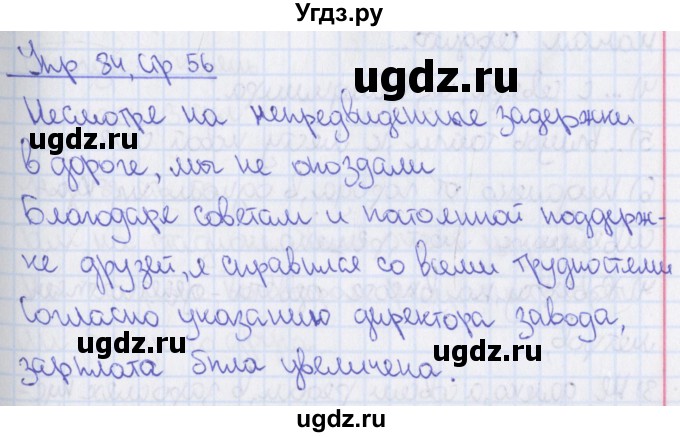 Угдз.ру
Упр 34, стр 56
ugdz.ru ugdz.ru
Несмотря на непредвиденные задержки
ugdz.ru ugdz.ru
в дороге, мы не опоздали
ugdz.ru
Благодаря советам и патоянной поддерж-
ugdz.ru
ке друзей, я справился со всеми трудностями
ugdz.ru
Согласно указанию директора завода,
ugdz.ru ugdz.ru
зарплата была увеличена.
ugdz.ru ugdz.ru
ugdz.ru